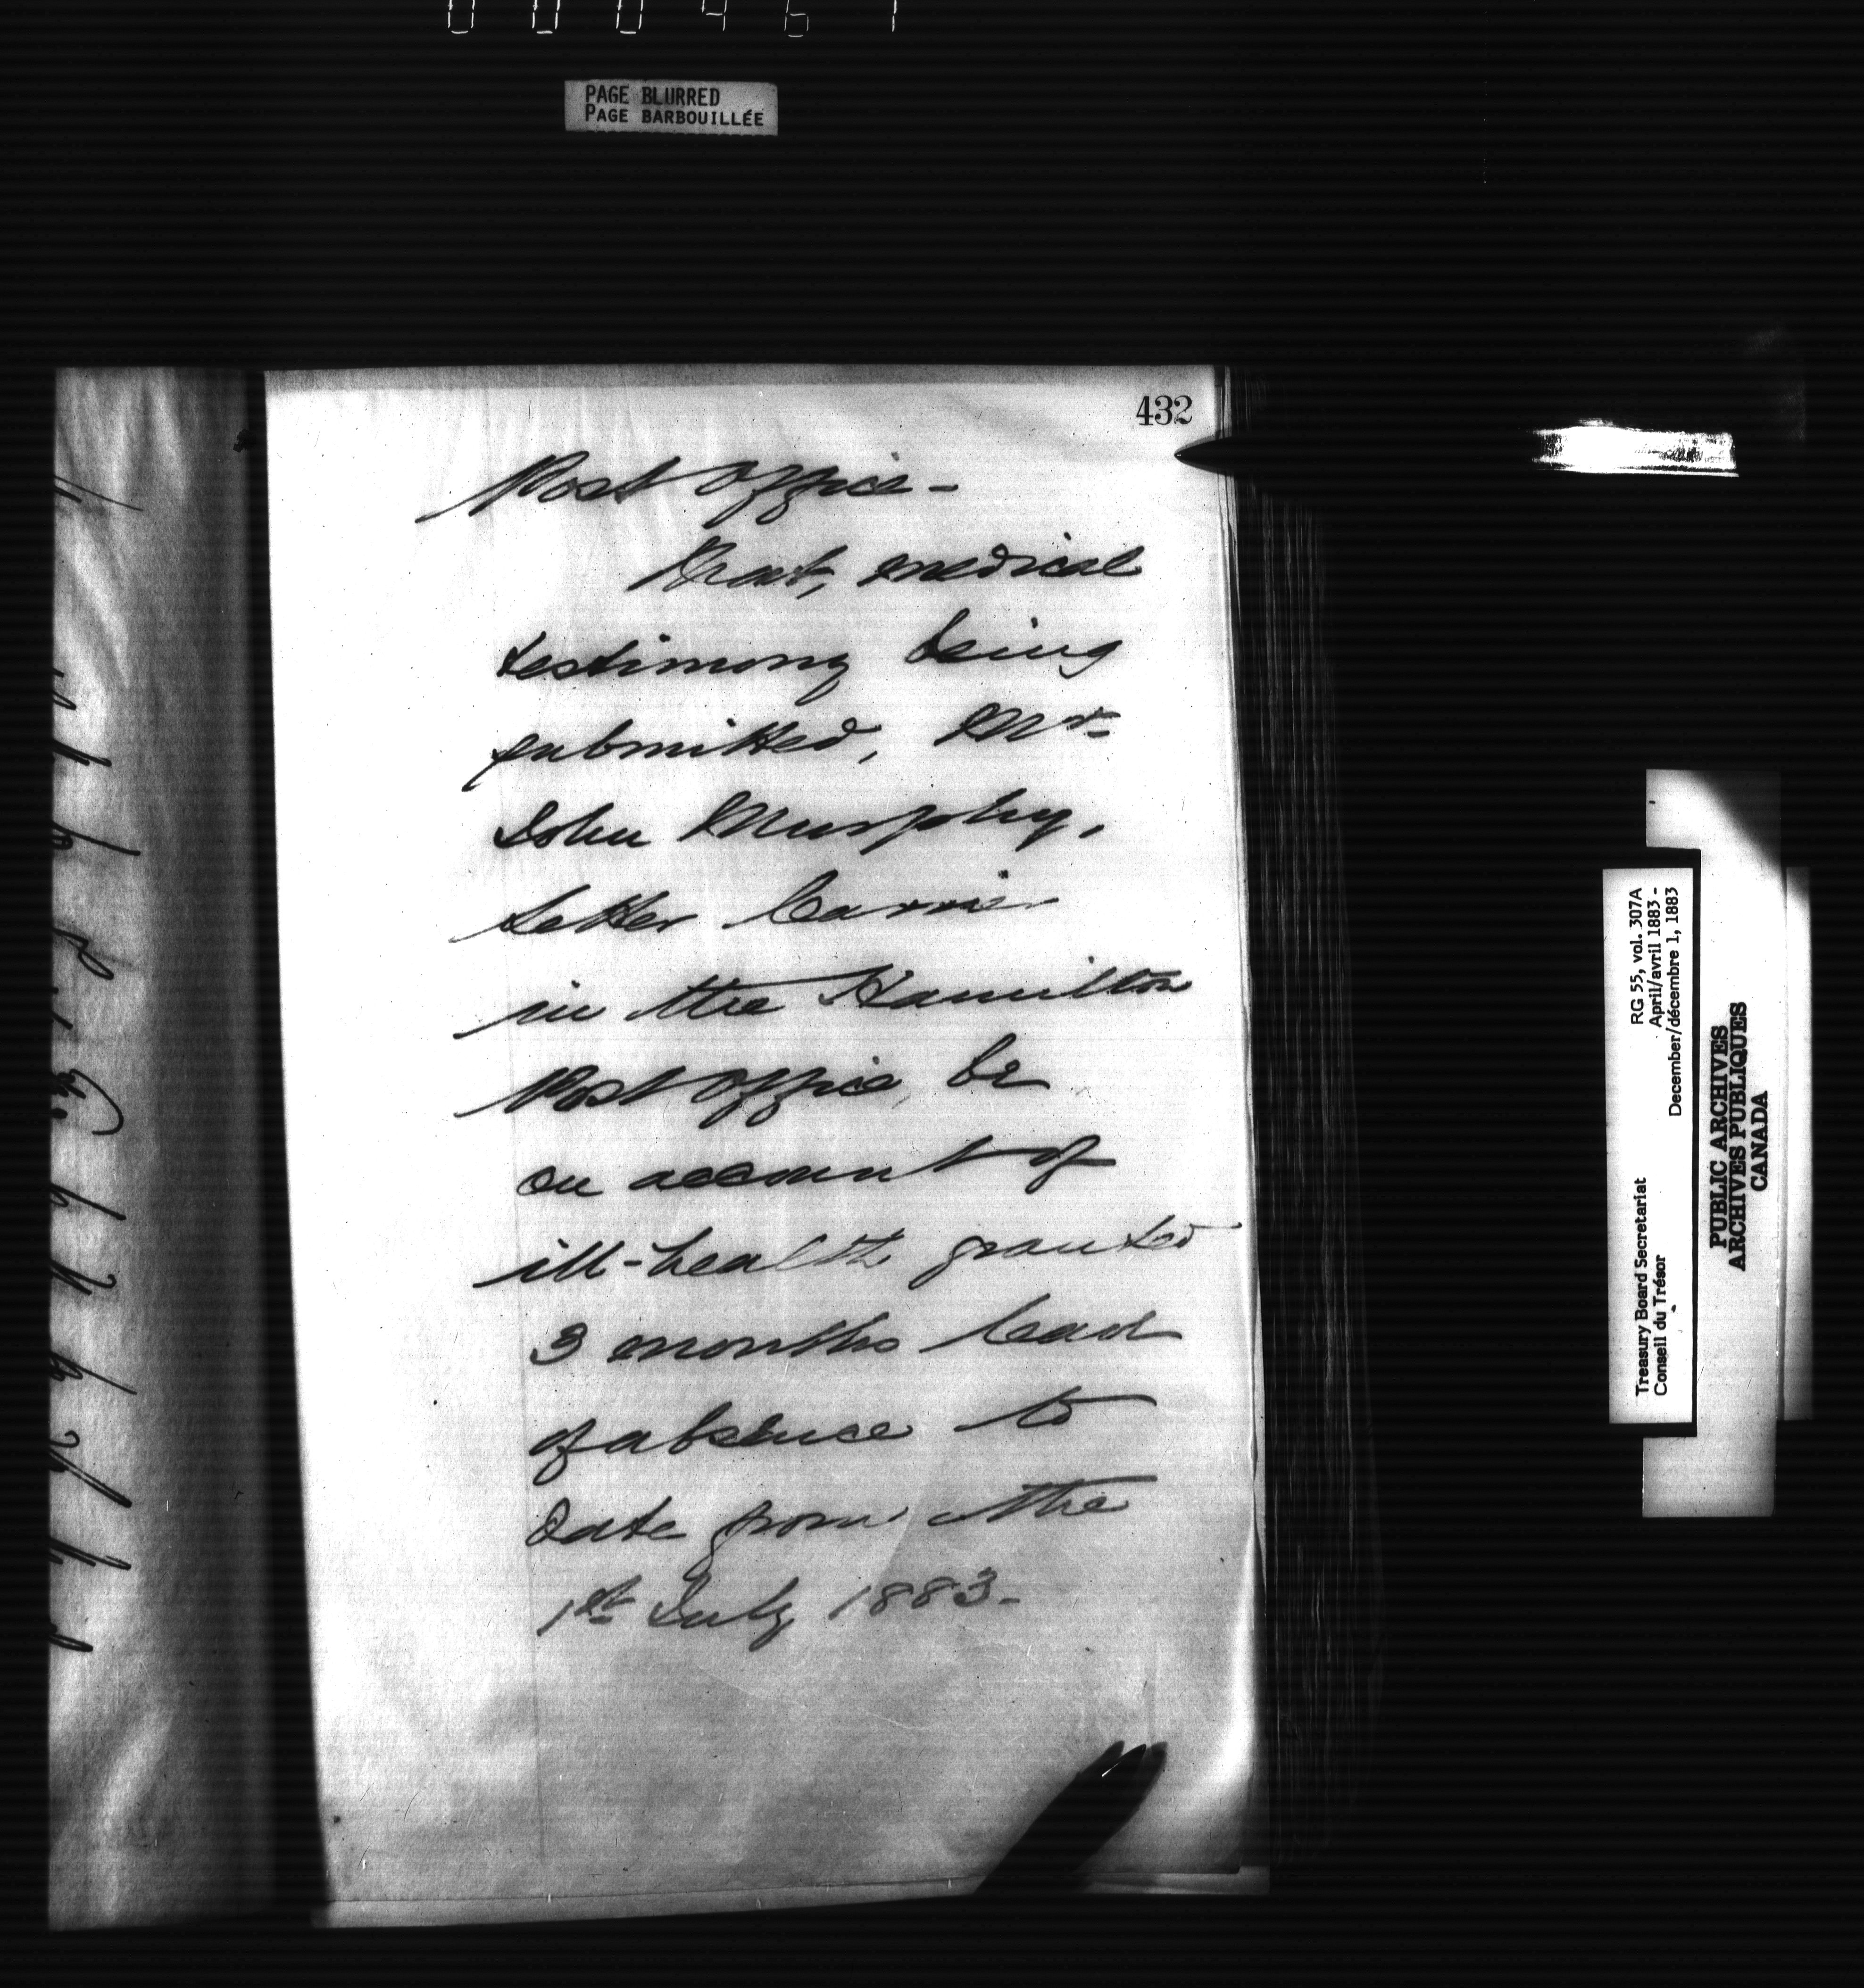 PAGE BLURRED
PAGE BARBOUILLÉE
432
Post Office -
That, medical
testimony being
submitted, Mr
John Murphy,
Letter Carrier
in the Hamilton
Post Office, be
on account of
ill-health granted
3 months leave
of absence to
date from the
1st July 1883.
RG 55, vol. 307A
April/avril 1883 -
December/décembre 1, 1883
Treasury Board Secretariat
Conseil du Trésor
PUBLIC ARCHIVES
ARCHIVES PUBLIQUES
CANADA